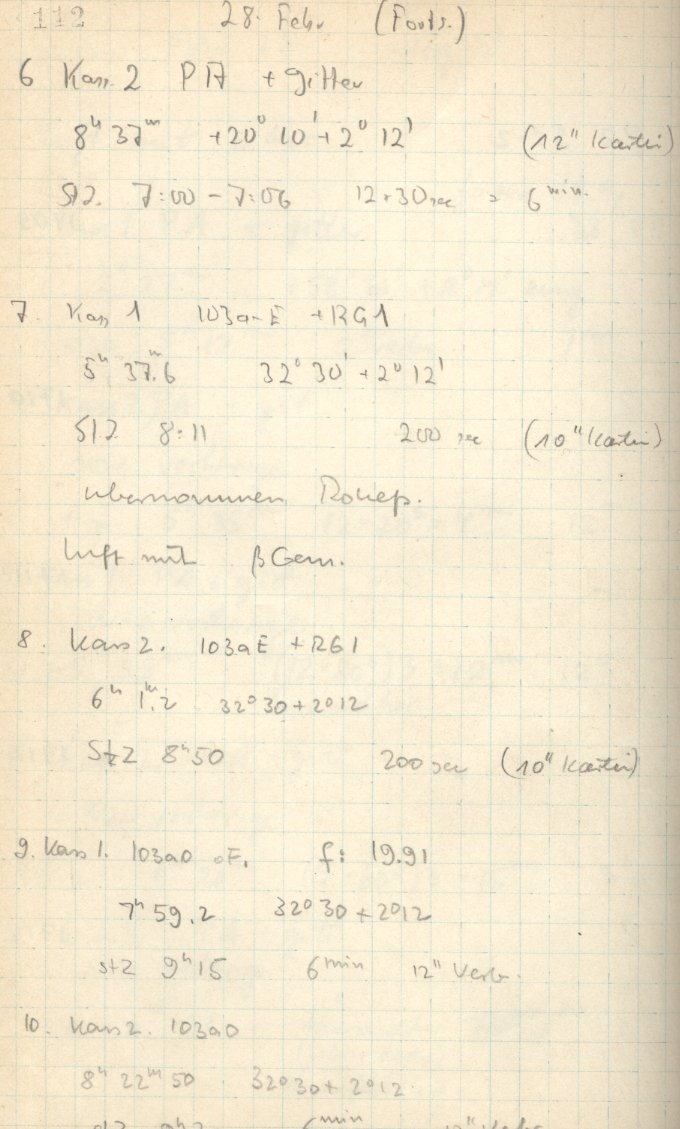 112 28. Febr (Forts.)
6 Kass. 2 PA + Gitter
8h 37m +20° 10' + 2° 12' (12"
StZ. 7:00 – 7:06 12×30sec = 6min.
7. Kass 1 103a-E + RG1
5h 37m.6 32° 30' + 2° 12'
StZ 8:11 200 sec (10"
übernommen
Luft mit β Gem.
8. Kass 2. 103aE + RG1
6h 1m.2 32°30 + 2°12
StZ 8h50 200 sec (10"
9. Kass 1. 103a0 oF. f: 19.91
7h 59.2 32°30 + 2°12
StZ 9h15 6min 12" Verb.
10. Kass 2. 103a0
8h 22m 50 32°30 + 2°12
6min